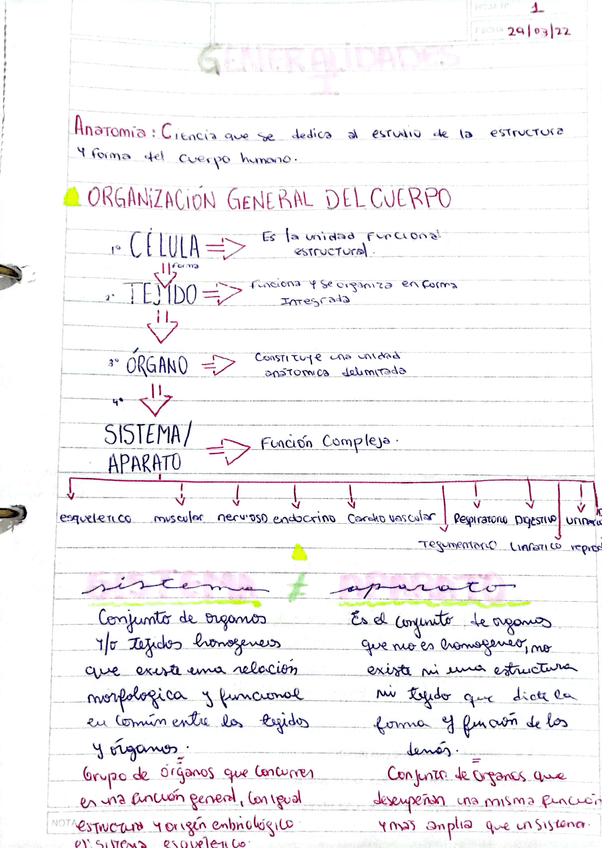 HOJA N° 1
FECHA 29/03/22
GENERALIDADES
1
Anatomia: Ciencia que se dedica al estudio de la estructura
y forma del cuerpo humano.
ORGANIZACIÓN GENERAL DEL CUERPO
1° CÉLULA ⇒ Es la unidad Funcional
estructural.
forma
2° TEJIDO ⇒ Funciona y se organiza en forma
Integrada
3° ÓRGANO ⇒ Constituye una unidad
anatomica delimitada
4°
SISTEMA/
APARATO ⇒ Función Compleja.
esqueletico muscular nervioso endocrino Cardio vascular Respiratorio Digestivo urinario
Tegumentario Linfatico repro
sistema ≠ aparato
Conjunto de organos
y/o tejidos homogeneos
que existe una relación
morfologica y funcional
en común entre los tejidos
y órganos.
Es el conjunto de organos
que no es homogeneo, no
existe ni una estructura
ni tejido que dicte la
forma y función de los
demás.
Grupo de órganos que concurren
en una función general, con igual
estructura y origen enbriologico.
el sistema esqueletico.
Conjunto de organos que
desempeñan una misma función
y mas amplia que un sistema.
NOTA